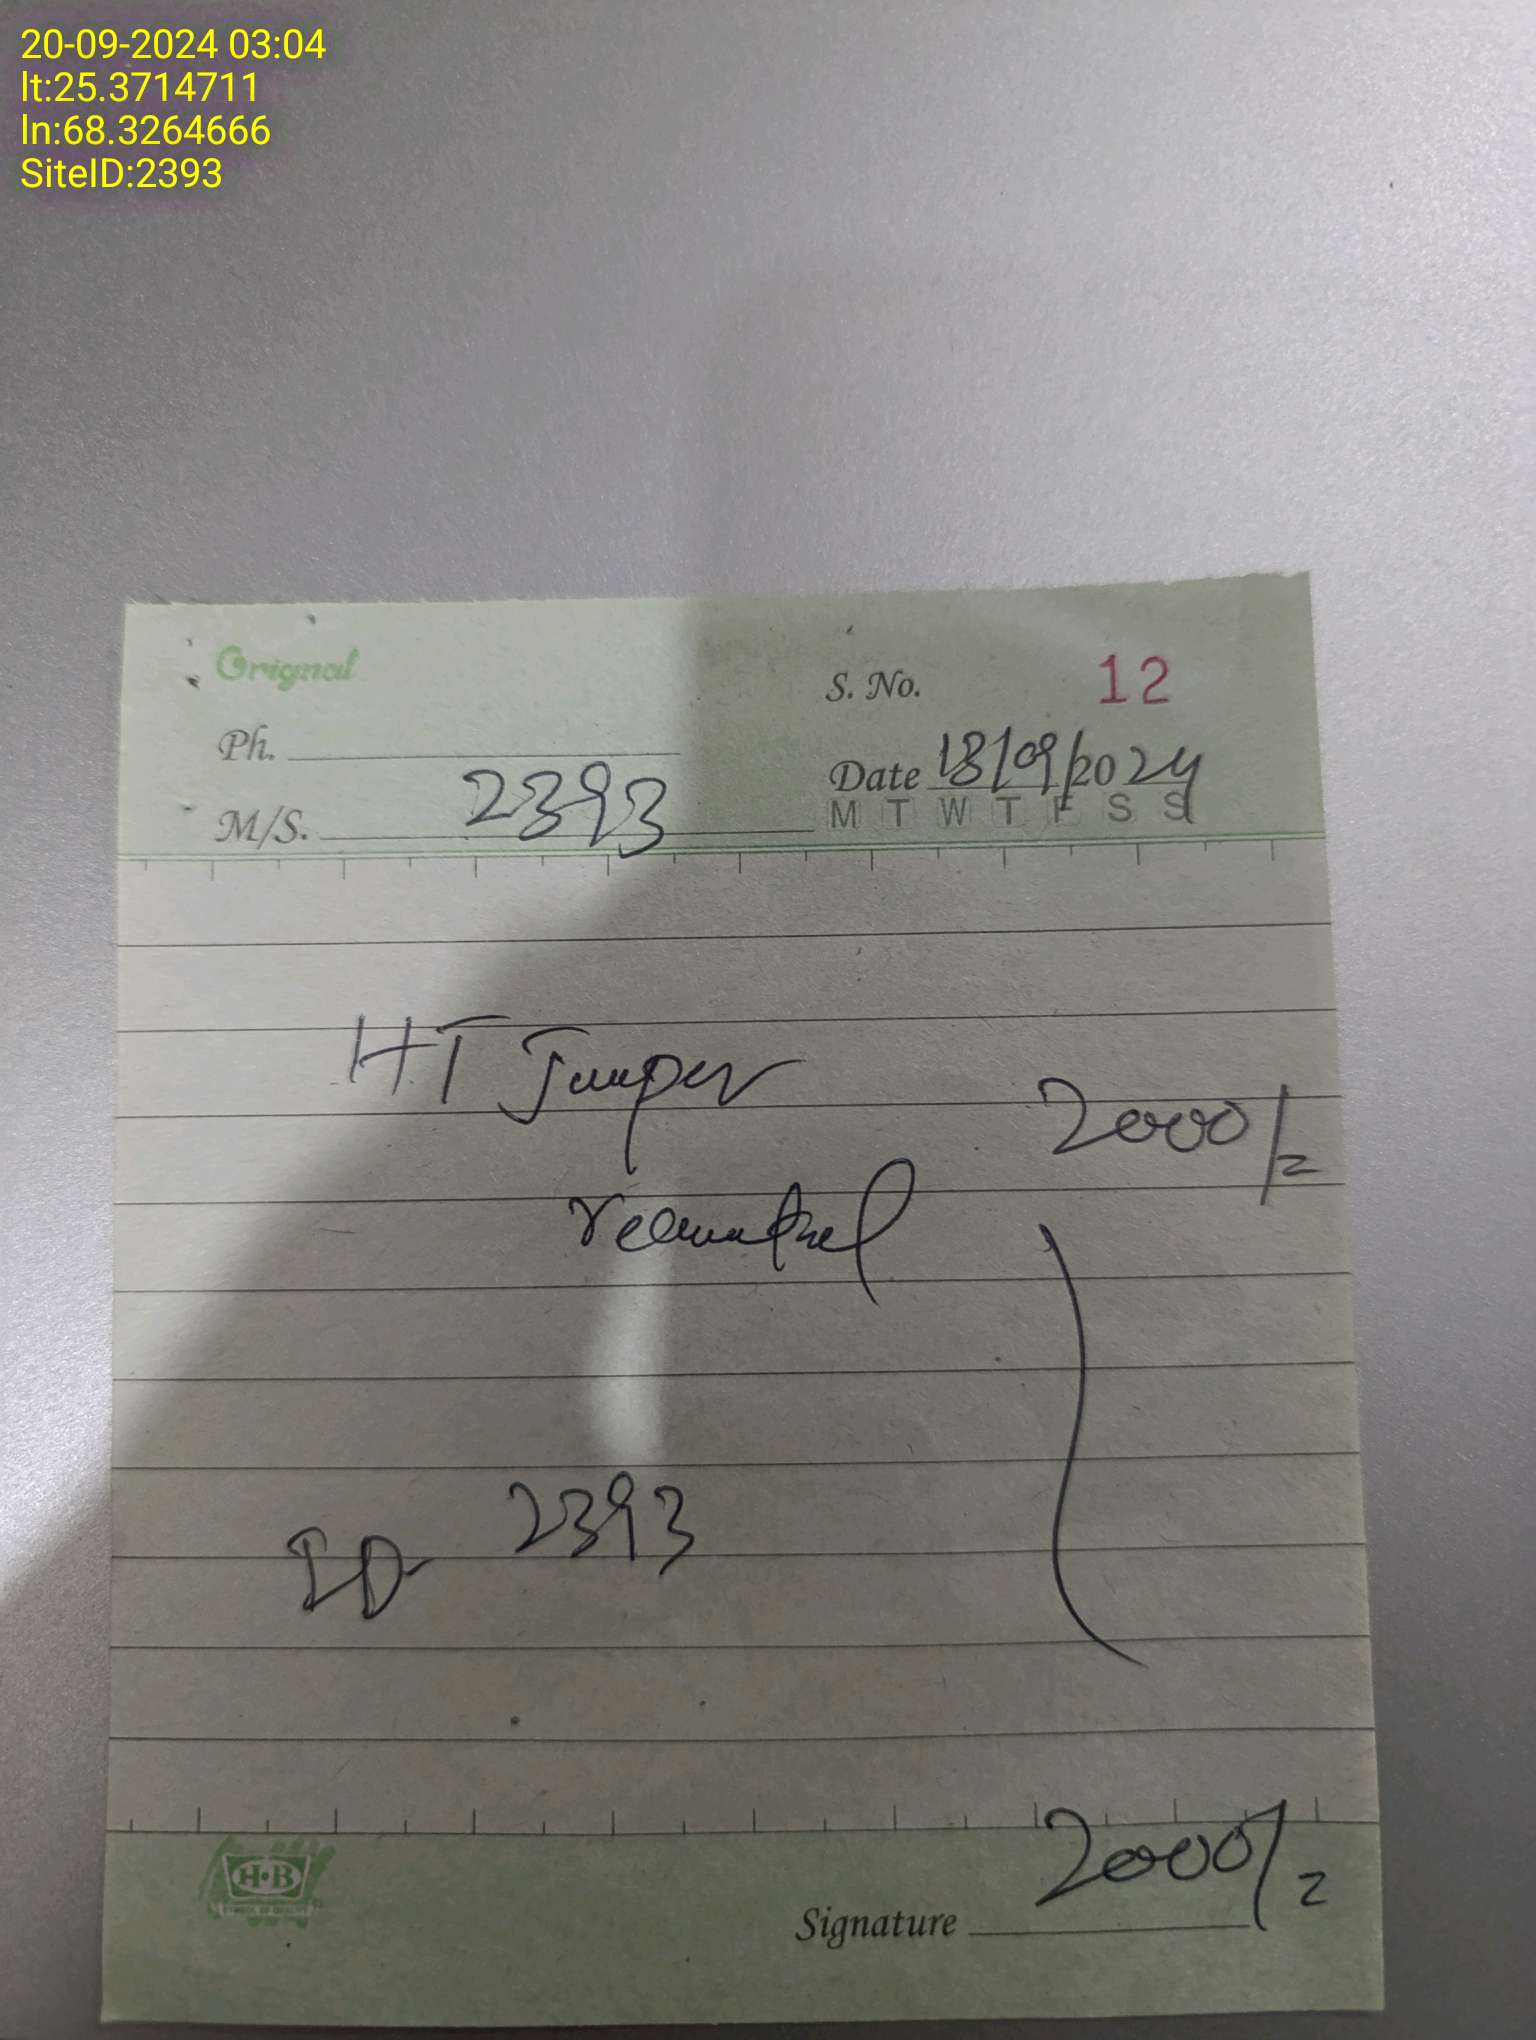 20-09-2024 03:04
lt:25.3714711
ln:68.3264666
SiteID:2393
Orignal
S. No. 12
Ph.
Date 18/09/2024
M/S. 2393
M T W T F S S
HT Jumper
2000/=
ID 2393
H·B
SYMBOL OF QUALITY
2000/=
Signature